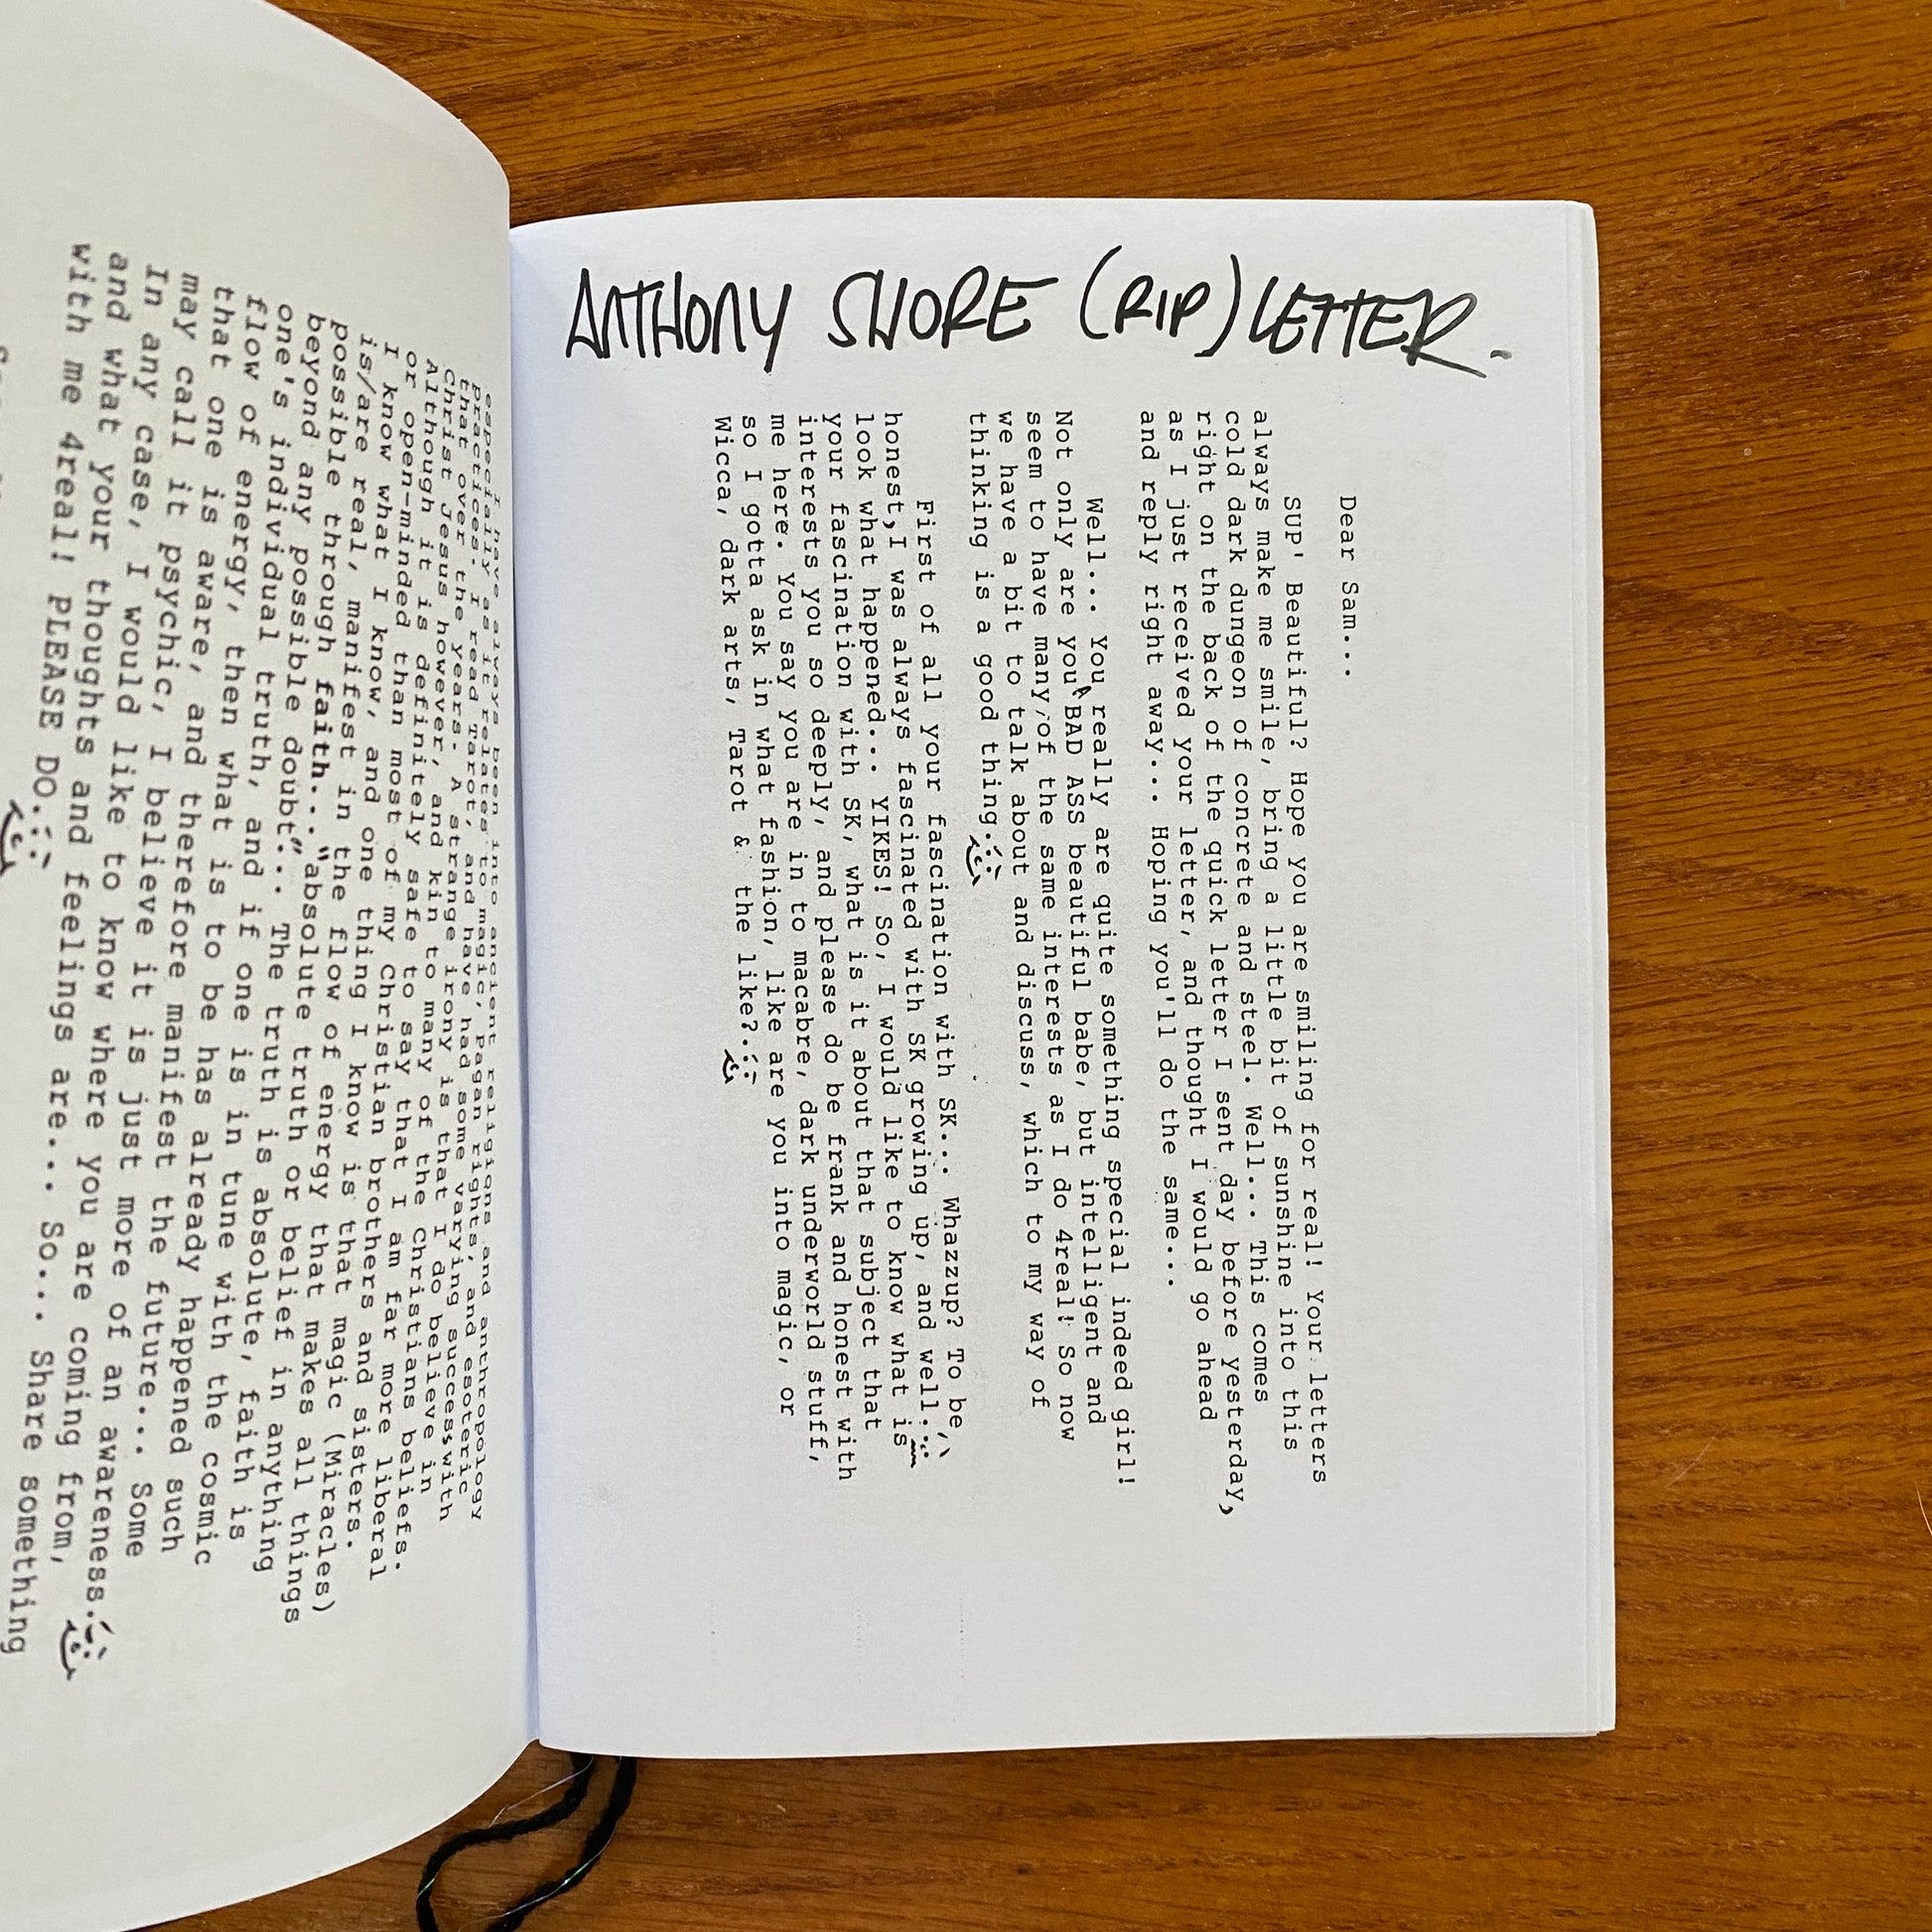 ANTHONY SHORE (RIP) LETTER.
Dear Sam...
SUP' Beautiful? Hope you are smiling for real! Your letters
always make me smile, bring a little bit of sunshine into this
cold dark dungeon of concrete and steel. Well... This comes
right on the back of the quick letter I sent day before yesterday,
as I just received your letter, and thought I would go ahead
and reply right away... Hoping you'll do the same...
Well... You really are quite something special indeed girl!
Not only are you BAD ASS beautiful babe, but intelligent and
seem to have many of the same interests as I do 4real! So now
we have a bit to talk about and discuss, which to my way of
thinking is a good thing.
First of all your fascination with SK... Whazzup? To be
honest, I was always fascinated with SK growing up, and well.
look what happened... YIKES! So, I would like to know what is
your fascination with SK, what is it about that subject that
interests you so deeply, and please do be frank and honest with
me here. you say you are in to macabre, dark underworld stuff,
so I gotta ask in what fashion, like are you into magic, or
Wicca, dark arts, Tarot & the like?
I have always been into ancient religions and anthropology
especially as it relates to magic, pagan rights, and esoteric
practices. I read Tarot, and have had some varying success with
that over the years. A strange irony is that I do believe in
Christ Jesus however, and kin to many of the Christians beliefs.
Although it is definitely safe to say that I am far more liberal
or open-minded than most of my Christian brothers and sisters.
I know what I know, and one thing I know is that magic (Miracles)
is/are real, manifest in the flow of energy that makes all things
possible through faith... "absolute truth or belief in anything
beyond any possible doubt"... The truth is absolute, faith is
one's individual truth, and if one is in tune with the cosmic
flow of energy, then what is to be has already happened such
that one is aware, and therefore manifest the future... Some
may call it psychic, I believe it is just more of an awareness.
In any case, I would like to know where you are coming from,
and what your thoughts and feelings are... So... Share something
with me 4real! PLEASE DO.